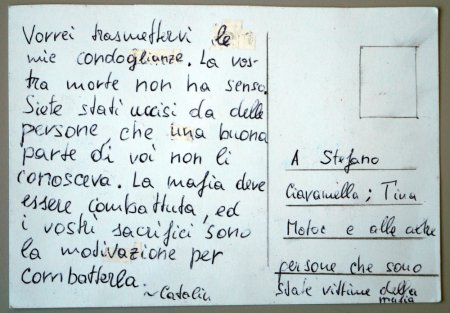 Vorrei trasmettervi le
mie condoglianze. La vos-
tra morte non ha senso.
Siete stati uccisi da delle
persone, che una buona
parte di voi non li
conosceva. La mafia deve
essere combattuta, ed
i vostri sacrifici sono
la motivazione per
combatterla.
~Catalin
A Stefano
Ciaramella; Tina
Motoc e alle altre
persone che sono
state vittime della
mafia